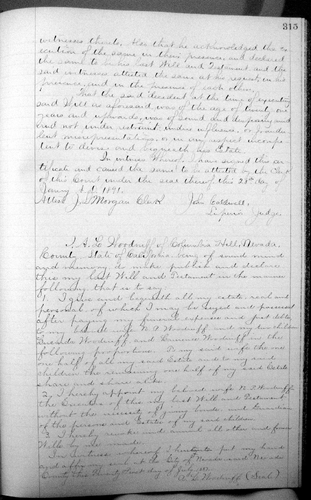 315
witnesses thereto. Also that he acknowledged the ex-
ecution of the same in their presence and declared
the same to be his last Will and Testament and the
said witnesses attested the same at his request, in his
presence, and in the presence of each other.
That the said decedent at the time of executing
said Will as aforesaid was of the age of twenty one
years and upwards, was of sound and disposing mind
and not under restraint, undue influence, or fraudu-
lent misrepresentations, or in any respect incompe-
tent to devise and bequeath his Estate.
In witness Whereof, I have signed this cer-
tificate and caused the same to be attested by the Clerk
of this Court under the seal thereof, this 28th day of
A.D. 1891.
Attest J. L. Morgan Clerk John Caldwell,
Superior Judge.
I, A. L. Woodruff of Columbia Hill, Nevada
County, State of California, being of sound mind
and memory do make publish and declare
this my last Will and Testament in the manner
following that is to say:
1. I give and bequeath all my estate, real and
personal, of which I may be seized and possessed
after paying my funeral expenses and just debts,
to my beloved wife N. P. Woodruff and my two children
Woodruff and Woodruff in the
following proportions. To my said wife the one
one half of all my said Estate and to my said
children the remaining one half of my said Estate
share and share alike.
2. I hereby appoint my beloved wife N. P. Woodruff
the Executrix of this my last Will and Testament
without the necessity of any bonds, and Guardian
of the persons and Estate of my said children.
3. I hereby revoke and annul all other and former
Wills by me made.
In witness whereof I hereunto put my hand
and affix my seal at the City of Nevada said Nevada
County this day of July
A. L. Woodruff (Seal)